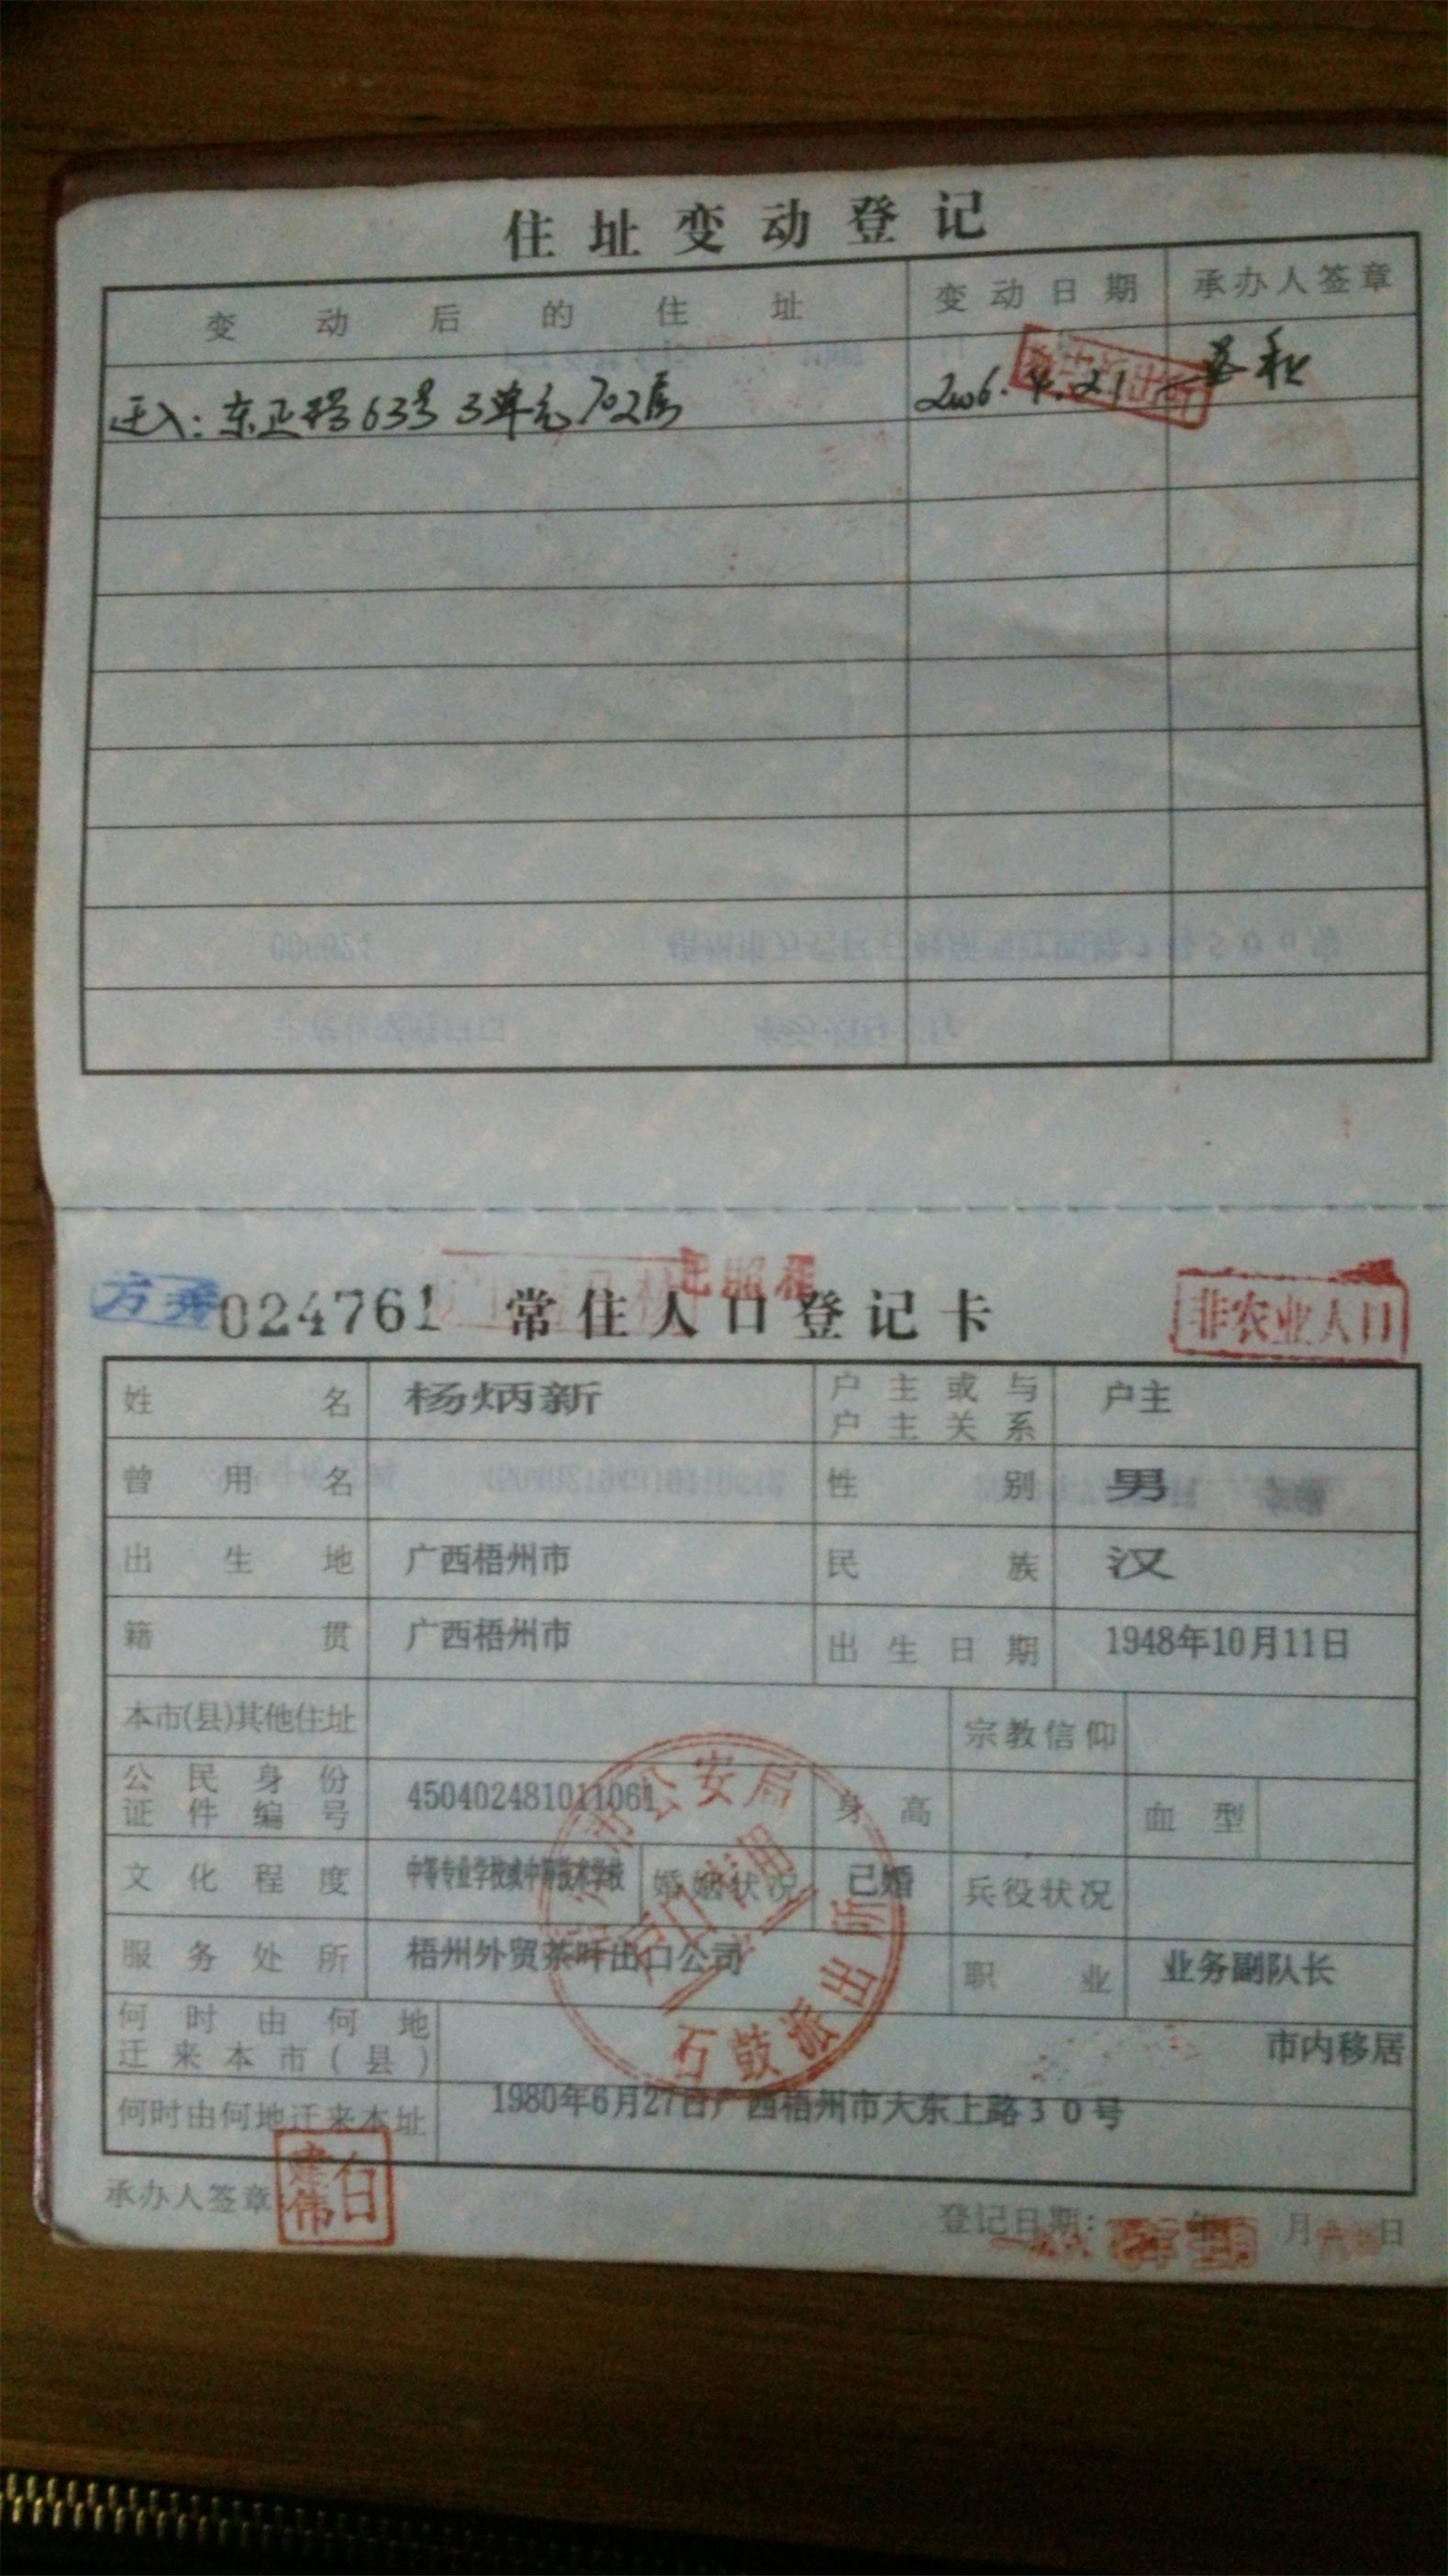 住址变动登记
变动后的住址 变动日期 承办人签章
迁入：东正路63号3单元702房 2006.4.21
024761 常住人口登记卡 非农业人口
姓名 杨炳新 户主或与户主关系 户主
曾用名 性别 男
出生地 广西梧州市 民族 汉
籍贯 广西梧州市 出生日期 1948年10月11日
本市(县)其他住址 宗教信仰
公民身份证件编号 450402481011061 身高 血型
文化程度 中等专业学校或中等技术学校 婚姻状况 已婚 兵役状况
服务处所 梧州外贸茶叶出口公司 职业 业务副队长
何时由何地迁来本市(县) 市内移居
何时由何地迁来本址 1980年6月27日广西梧州市大东上路30号
公安局
户口专用
石鼓派出所
承办人签章 登记日期： 年 月 日